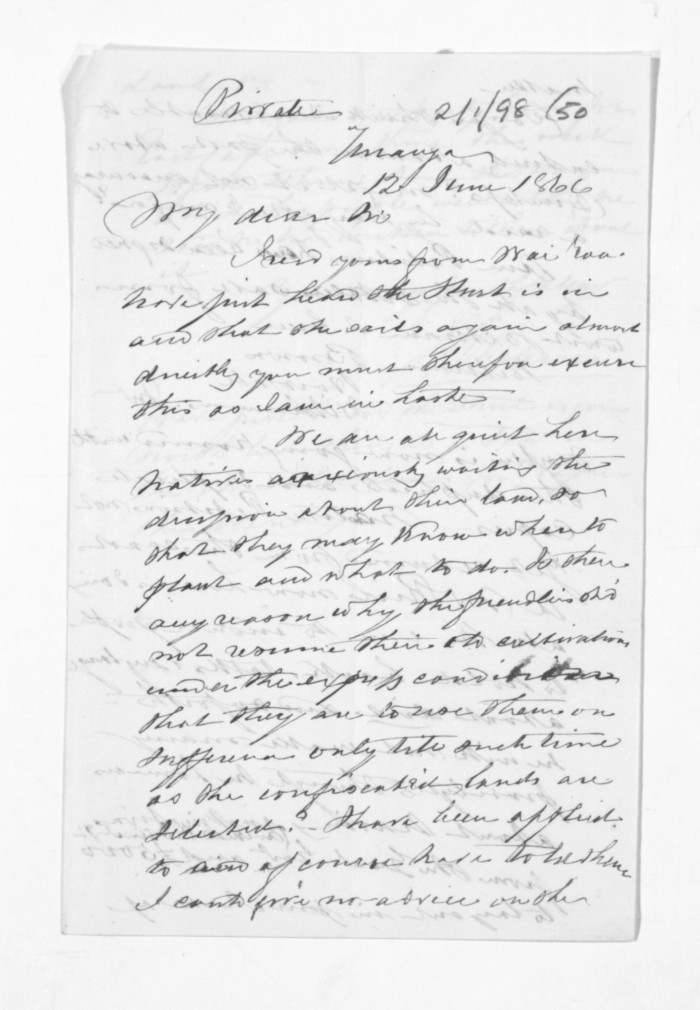 Private 2/1/98 (50
Turanga
12 June 1866
My dear Sir
I recd yours from Wai roa
have just heard the Sturt is in
and that she sails again almost
directly you must therefore excuse
this as I am in haste
We are all quiet here
natives anxiously waiting the
decision about their land, so
that they may know when to
plant and what to do. Is there
any reason why the friendlies sh'd
not resume their old cultivations
under the express conditions
that they are to use them on
sufferance only till such time
as the confiscated lands are
selected? - I have been applied
to and of course have to tell them
I can give no advice on the